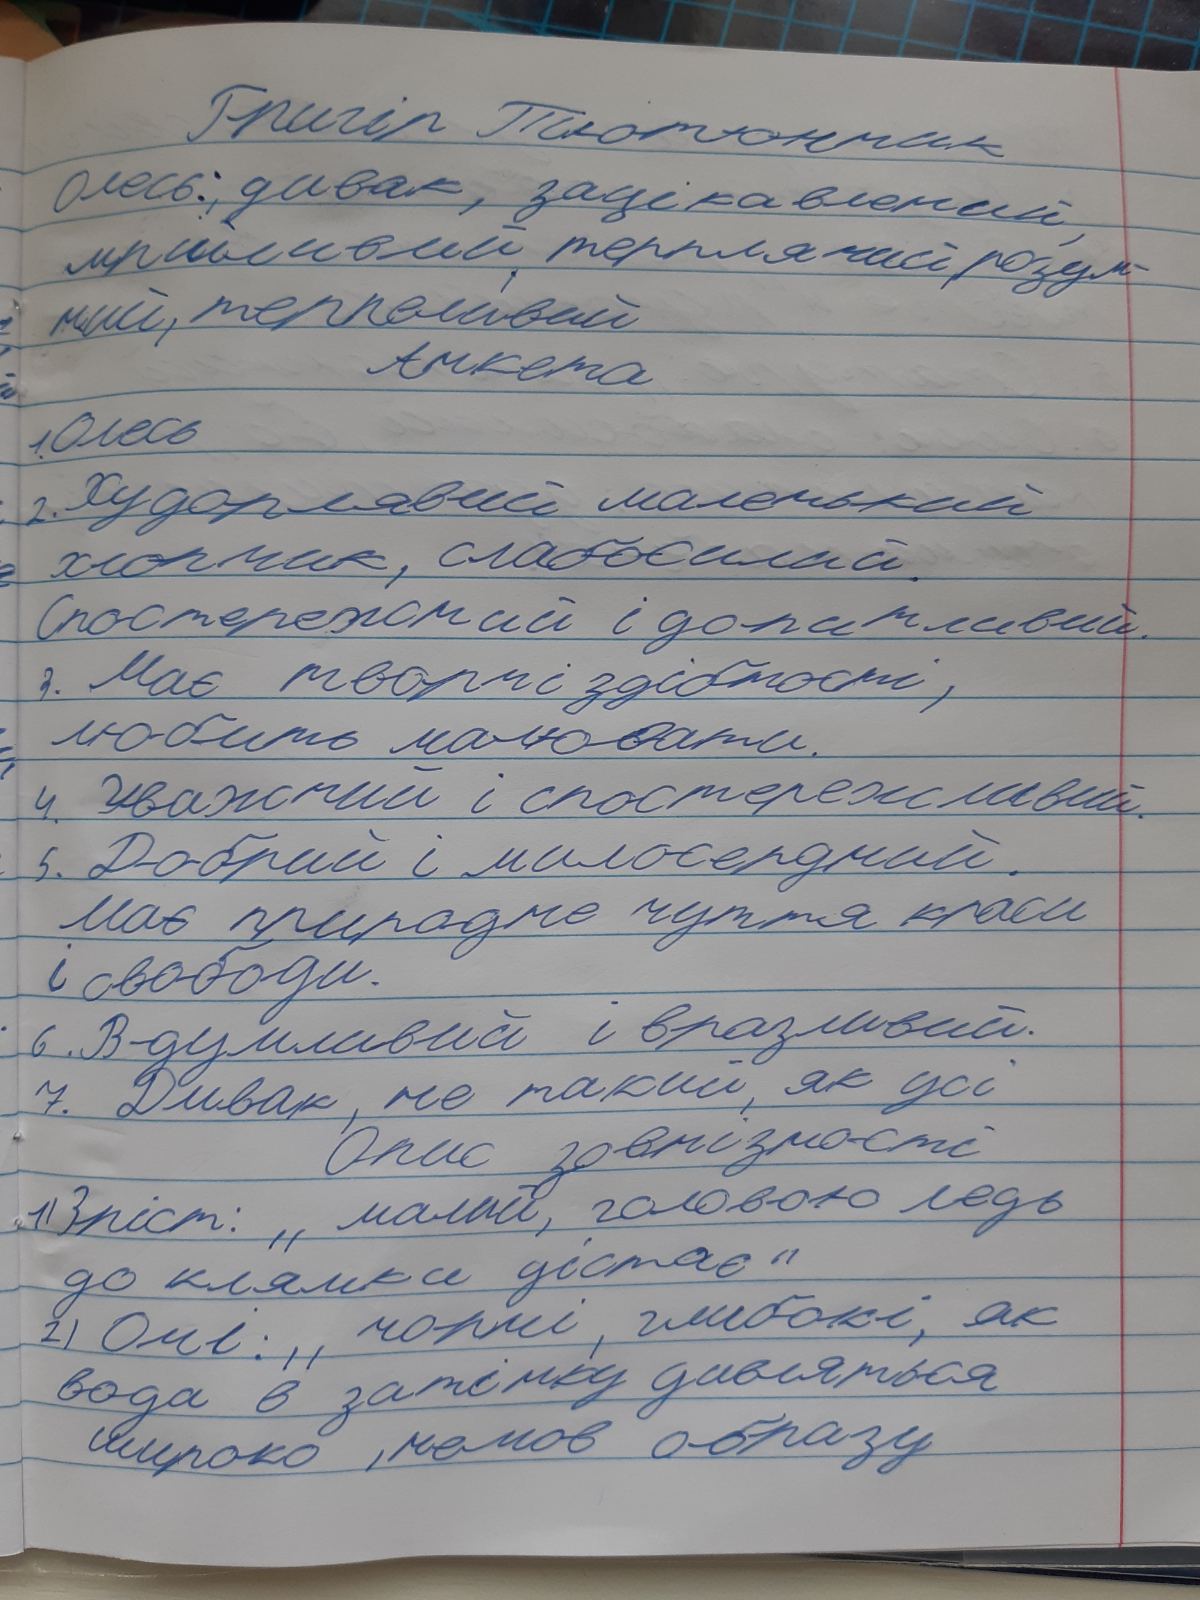 Григір Тютюнник
Олесь:, дивак, зацікавлений,
мрійливий, терплячий, розум-
ний, терпеливий
Анкета
1. Олесь
2. Худорлявий маленький
хлопчик, слабосилий.
Спостережний і допитливий.
3. Має творчі здібності,
любить малювати.
4. Уважний і спостережливий.
5. Добрий і милосердний.
Має природне чуття краси
і свободи.
6. Вдумливий і вразливий.
7. Дивак, не такий, як усі
Опис зовнізності
1) Зріст: ,, малий, головою ледь
до клямки дістає"
2) Очі: ,, чорні, глибокі, як
вода в затінку дивляться
широко, немов образу